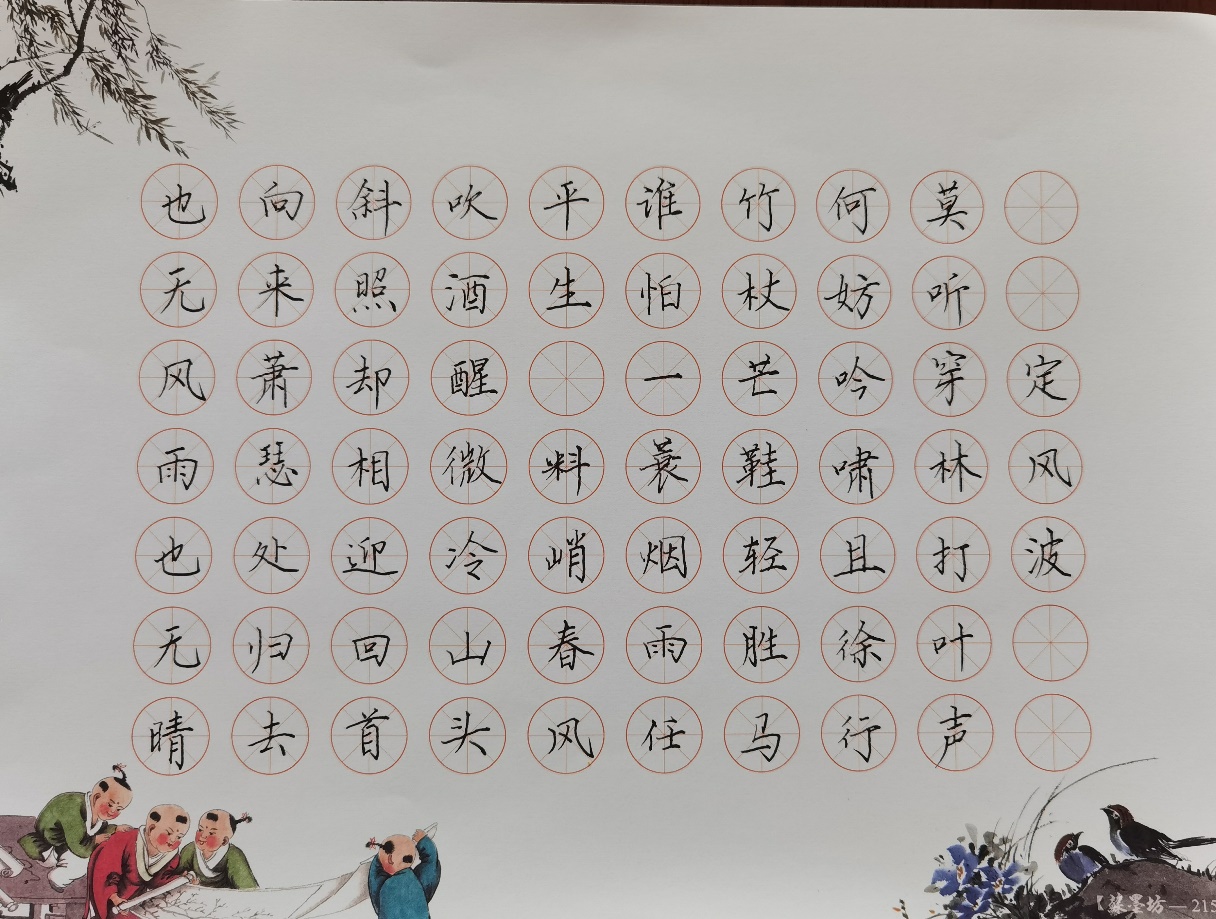 定风波
莫听穿林打叶声
何妨吟啸且徐行
竹杖芒鞋轻胜马
谁怕一蓑烟雨任
平生 料峭春风
吹酒醒微冷山头
斜照却相迎回首
向来萧瑟处归去
也无风雨也无晴
【染墨坊—215